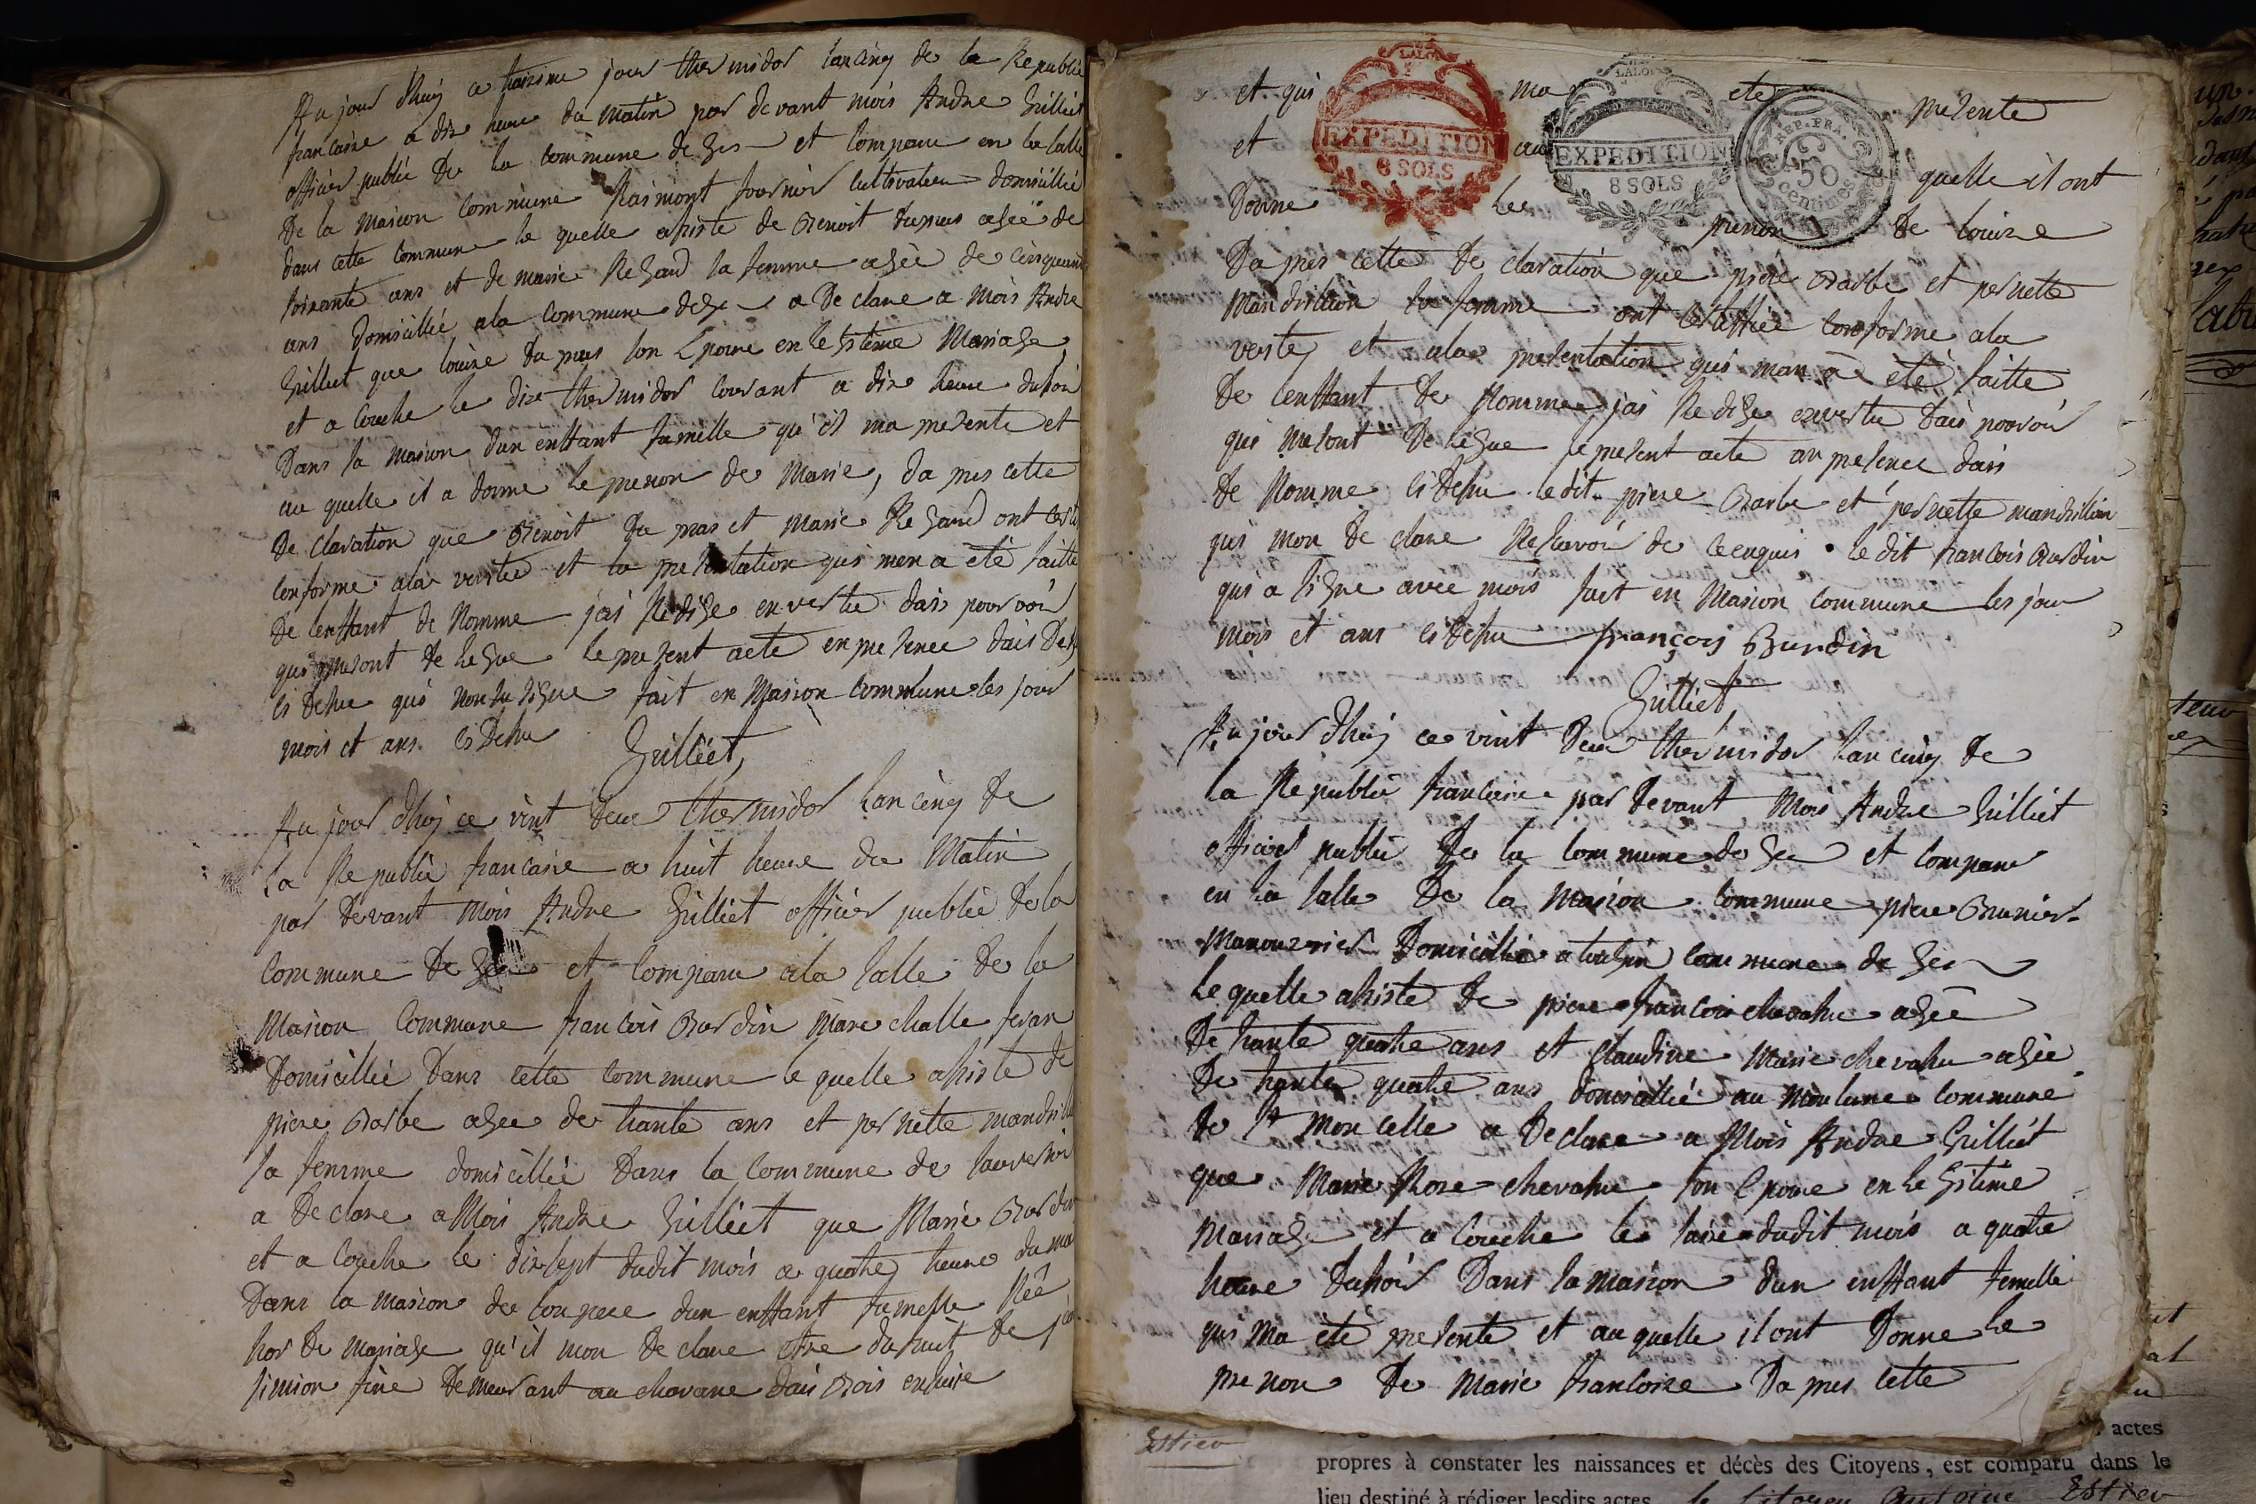 Au jour dhuj ce traisime jour thermidor lancinq de la Republi
francaise a dix heure du matin par devant mois Andre Gilliet
officier publié de la commune de Gex et comparu en la salle
De la maison commune Raimont fournier cultivateur domicillié
dans cette commune le quelle asiste de Benoit dumas agée de
soixante ans et de marie Regard sa femme agée de cinquante
ans domicillié ala commune de Gex a Declare a mois Andre
Gilliet que louise Dumas son Epouse en legitime Mariage
et a Couche le dix thermidor courant a dix heure dusoir
Dans sa maison dun enffant famille qu'il ma presenté et
au quelle il a donne le prenon de Marie, da pres cette
De claration que Benoit Du mas et Marie Regard ont certi
conforme ala verite et la presentation qui men a été faitte
De lenffant de Nomme jai Redige en vertu dais pouvoir
qui mesont delegue le present acte en presence dais De
ci Desu qui non su signe fait en Maison commune les jour
mois et ans ci Desu Gilliet,
Au jour dhuj ce vint deux thermidor lancinq de
la Republié francaise a huit heure du Matin
par devant mois Andre Gilliet officier publié de la
commune De Gex et comparu ala salle de la
Maison commune francois Burdin marechalle feran
Domicillié Dans cette commune le quelle asiste de
piere Barbe agée de trante ans et pernette mandrill
sa femme domicillié Dans la commune de sauverni
a Declare a Mois Andre Gilliet que Marie Burdin
et a couche le dixsept dudit mois a quatre heure du ma
Dans la maison de son pere dun enffant famelle Née
hor de mariage qu'il mon De clare etre du fruit de
simion fine Demeurant au chavane dais Bois ensuise
et qui ma ete presente
et au quelle il ont
Donne le prenon De louise
Da pres cette De claration que piere Barbe et pernette
Mandrillion sa femme ont certiffiée conforme ala
verite, et ala presentation qui man a été faitte
De lenffant de Nomme jai Redige envertu Dais pouvoir
qui mesont Delegue le present acte an presence dais
De Nomme ci Desu ledit piere Barbe et pernette mandrillion
qui mon De clare Ne savoir de ce enquis le dit francois Burdin
qui a signe avec mois fait en Maison commune les jour
mois et ans ci Desu françois Burdin
Gilliet
Au jour dhuj ce vint Deux thermidor lan cinq de
la Republié francaise par devant Mois Andre Gilliet
officier publié De la commune de Gex et comparu
en la salle De la Maison commune piere Brunier
manouvrier Domicillié a tougin commune de Gex
le quelle asiste De piere francois chevalu agée
De trante quatre ans et Claudine Marie chevalu agée
De trante quatre ans domicillié au moulune commune
de St Moncelle a Declare a Mois Andre Gilliet
que Marie Rose chevalu son Epouse en legitime
Mariage et a couche le saise dudit mois a quatre
heure dusoir Dans sa maison dun enffant femelle
qui ma été presente et au quelle il ont Donne le
prenon De Marie francoise Da pres cette
LALOI
EXPEDITION
8 SOLS
LALOI
EXPEDITION
8 SOLS
REP. FRA.
50
centimes
actes
propres à constater les naissances et décès des Citoyens, est comparu dans le
lieu destiné à rédiger lesdits actes le Citoyen Antoine Estier